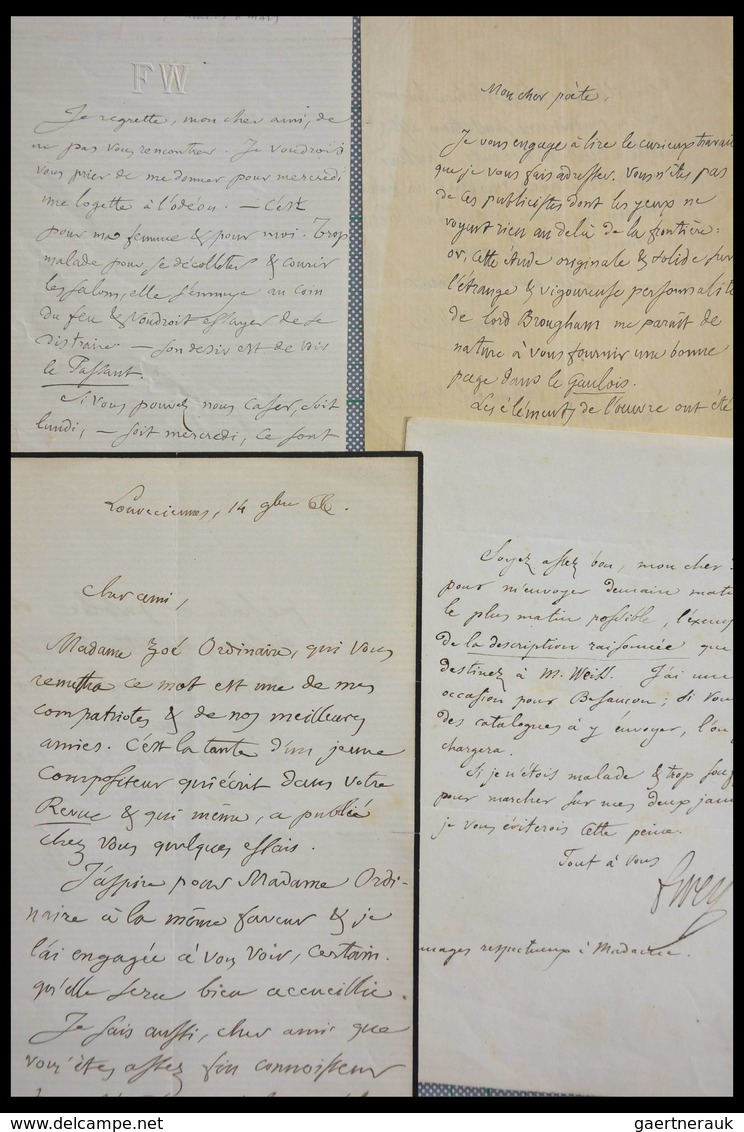 FW
Je regrette, mon cher ami, de
ne pas vous rencontrer. Je voudrois
vous prier de me donner pour mercredi
une logette à l'odéon. — C'est
pour ma femme & pour moi. Trop
malade pour se décolleter & courir
les salons, elle s'ennuye au coin
du feu & voudroit essayer de se
distraire. — Son desir est de voir
le Passant.
Si vous pouvez nous caser, soit
lundi, — soit mercredi, ce sont
Mon cher poète,
Je vous engage à lire le curieux travail
que je vous fais adresser. Vous n'êtes pas
de ces publicistes dont les yeux ne
voyent rien au delà de la frontière:
or, cette étude originale & solide sur
l'étrange & vigoureuse personnalité
de lord Brougham me paraît de
nature à vous fournir une bonne
page dans le Gaulois.
Les éléments de l'œuvre ont été
Louveciennes, 14 gbre
Cher ami,
Madame Zoé Ordinaire, qui vous
remettra ce mot est une de mes
compatriotes & de nos meilleures
amies. C'est la tante d'un jeune
compositeur qui écrit dans votre
Revue & qui même, a publié
chez vous quelques essais.
J'aspire pour Madame Ordi-
naire à la même faveur & je
l'ai engagée à vous voir, certain
qu'elle sera bien accueillie.
Je sais aussi, cher ami que
vous êtes assez fin connoisseur
Soyez assez bon, mon cher
pour m'envoyer demain mat
le plus matin possible, l'exemp
de la description raisonnée que
destinez à M. Weiss. J'ai une
occasion pour Besançon; si vou
des catalogues à y envoyer, l'on
chargera.
Si je n'étois malade & trop souf
pour marcher sur mes deux jam
je vous éviterois cette peine.
Tout à vous
F Wey
mages respectueux à Madame.
gaertnerauk